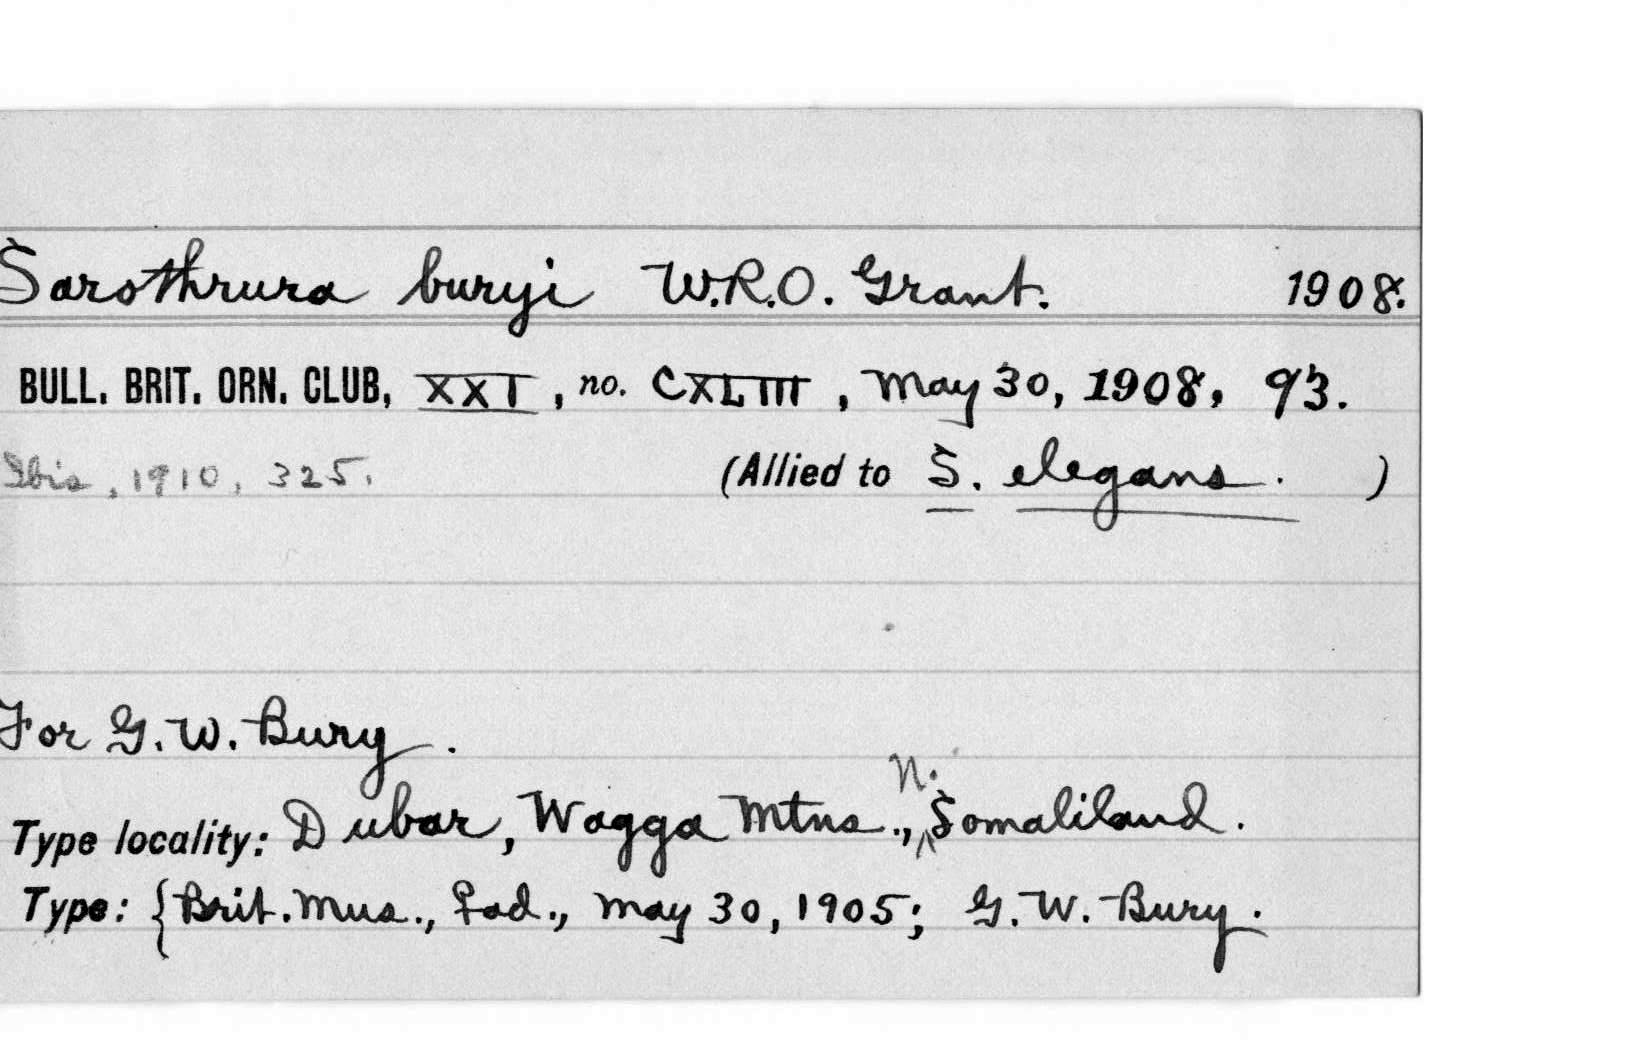 Sarothrura buryi W.R.O. Grant. 1908.
BULL. BRIT. ORN. CLUB, XXI, no. CXLIII, May 30, 1908, 93.
Ibis, 1910, 325. (Allied to S. elegans. )
For G.W. Bury.
N.
Type locality: Dubar, Wagga Mtns., Somaliland.
Type: {Brit. Mus., ♀ad., May 30, 1905; G.W. Bury.